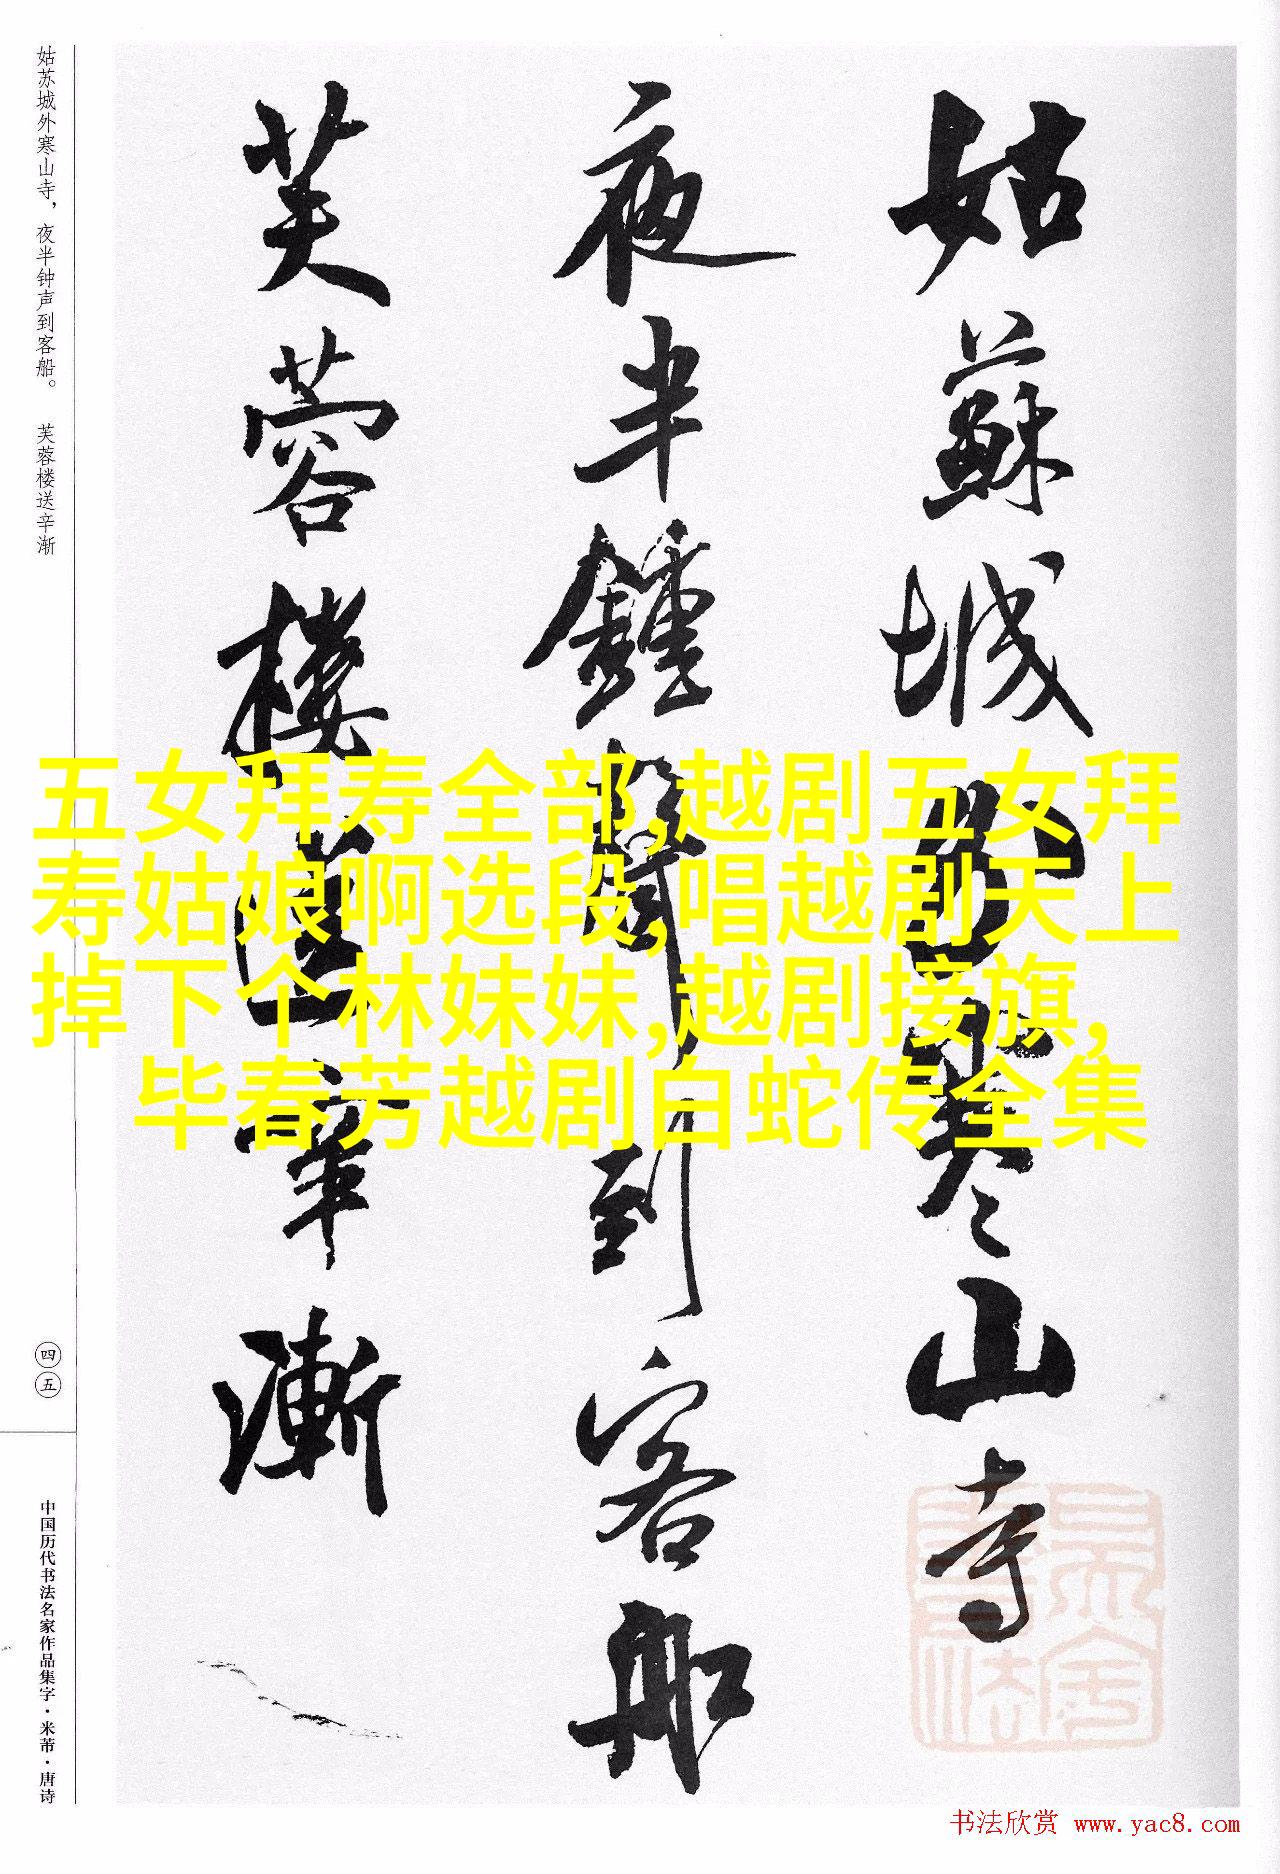 姑苏城外寒山寺，夜半钟声到客船。 芙蓉楼送辛渐
姑蘇城外寒山寺
夜半鍾聲到客船
芙蓉樓送辛漸
五女拜寿全部,越剧五女拜
寿姑娘啊选段,唱越剧天上
掉下个林妹妹,越剧接旗,
毕春芳越剧白蛇传全集
四五
中国历代书法名家作品集字·米芾·唐诗
书法欣赏 www.yac8.com